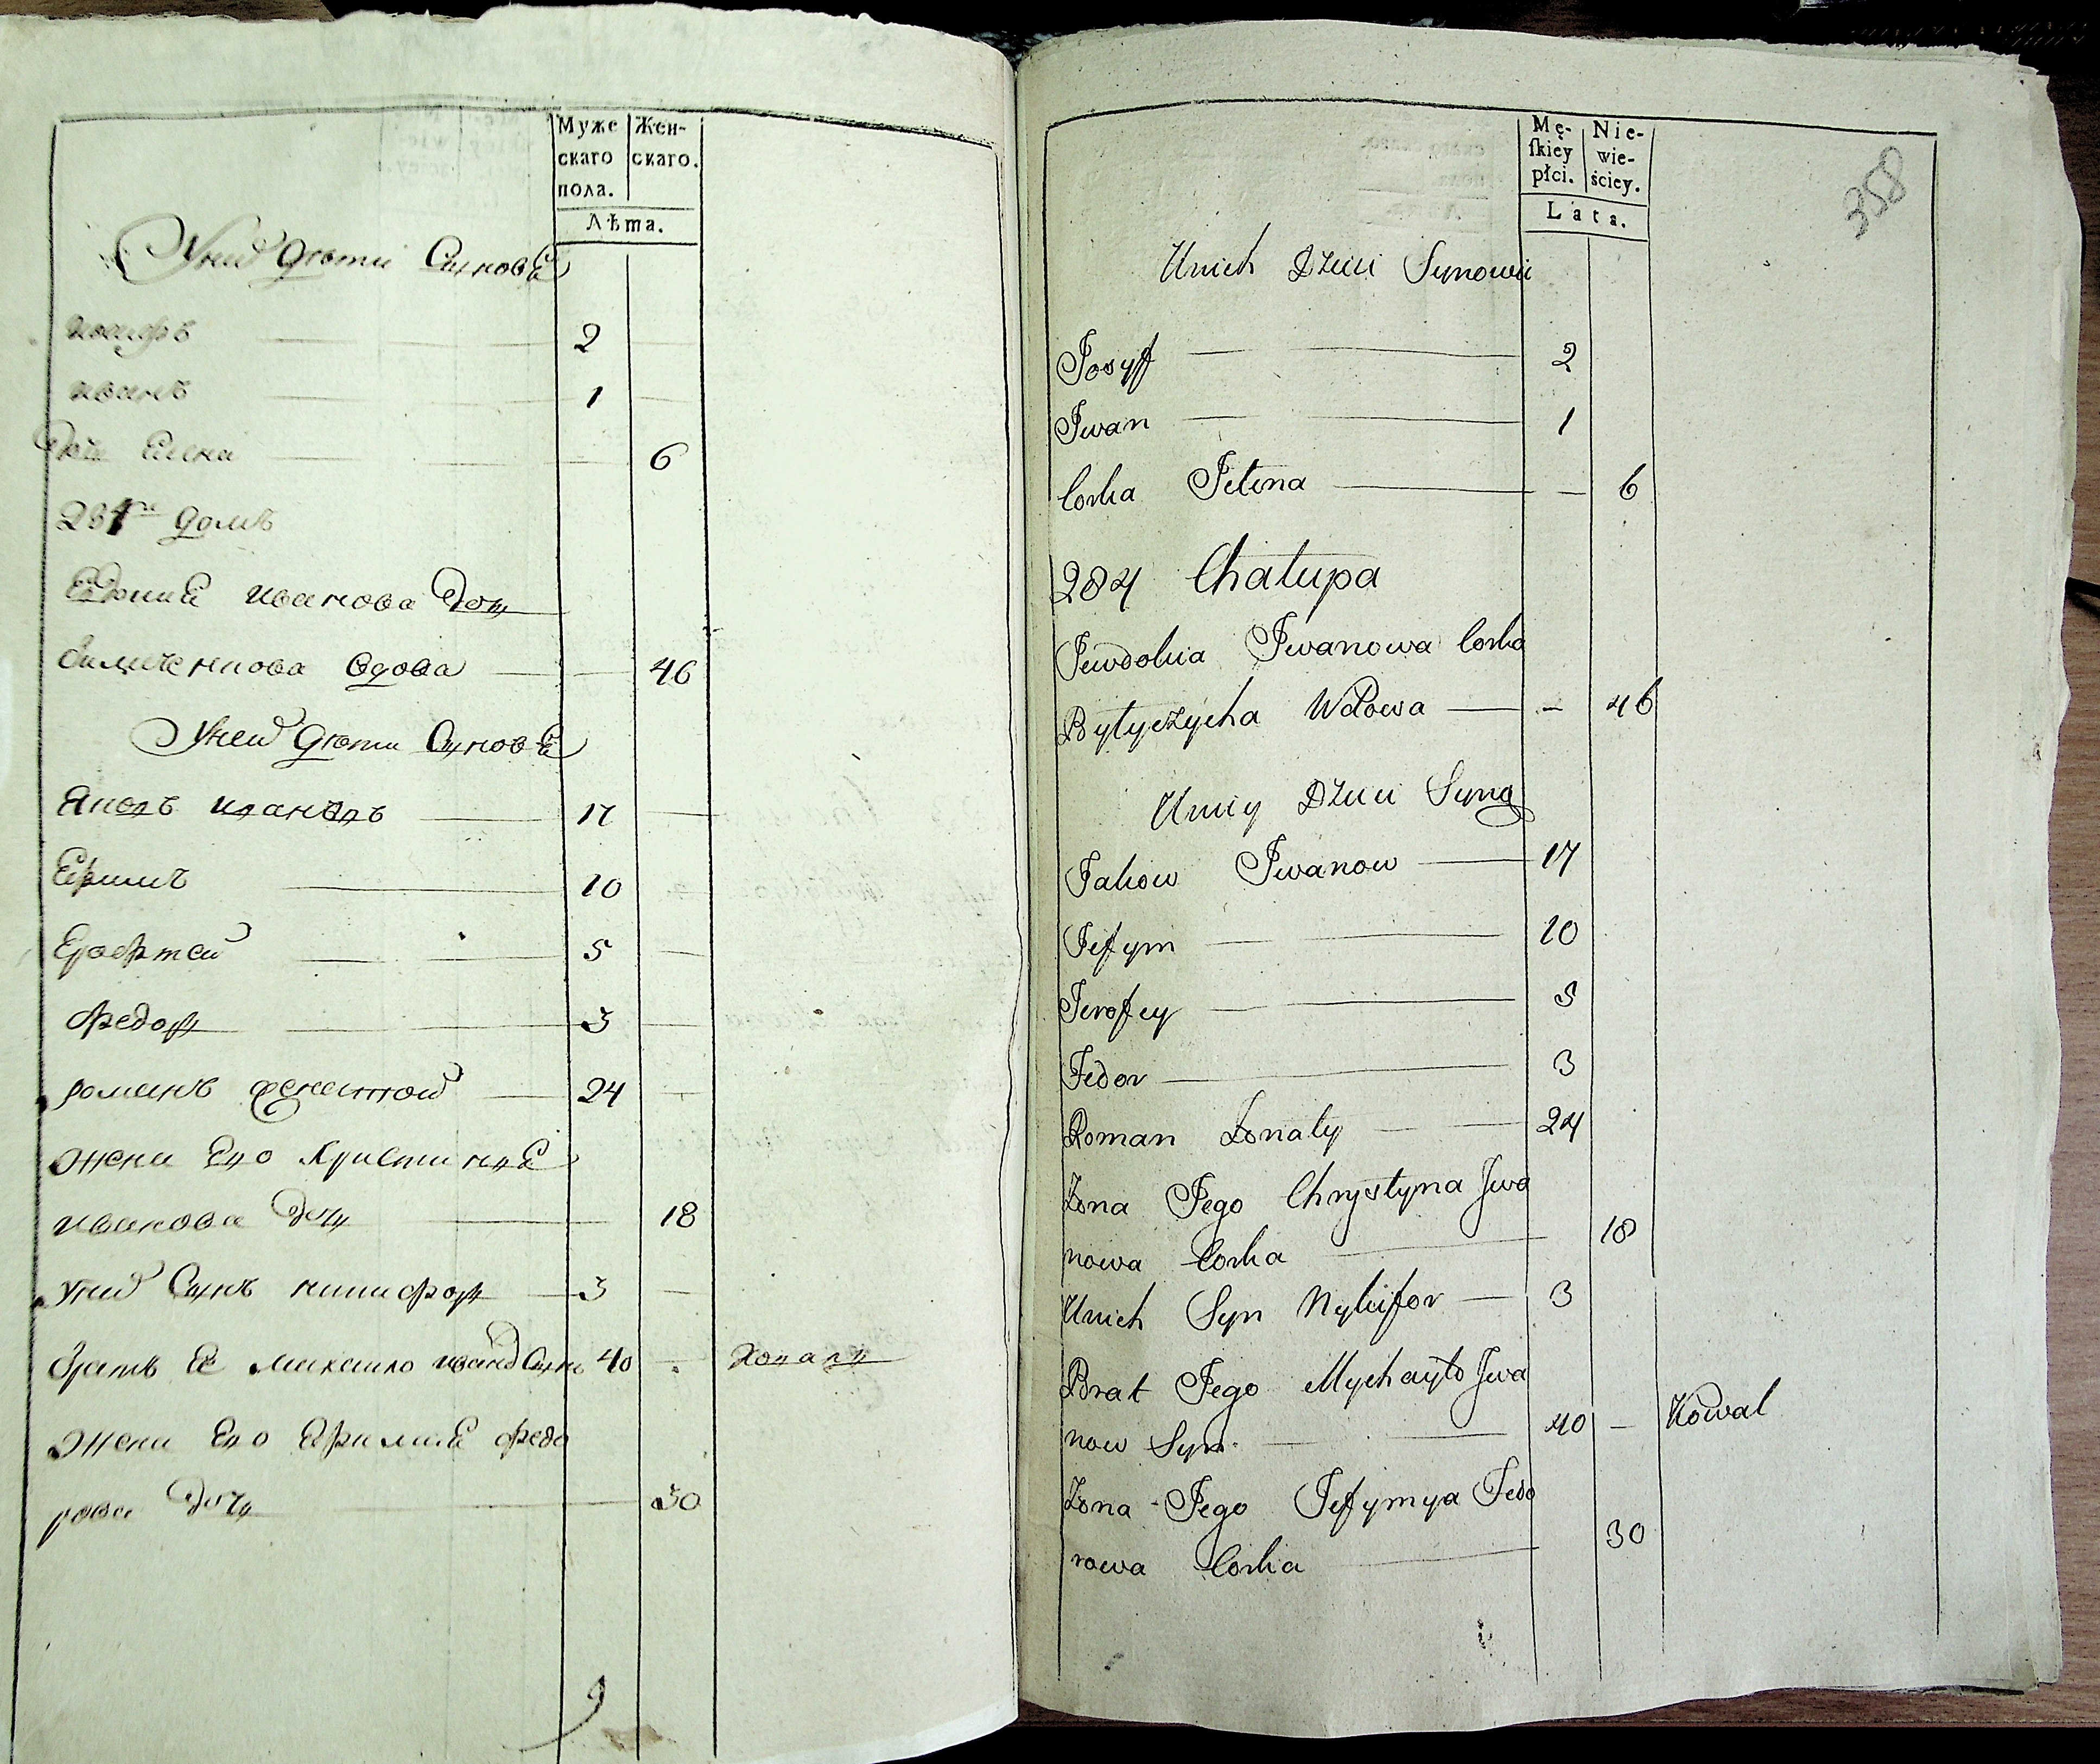 Муже
скаго
пола.
Жен-
скаго.
Лѣта.
Унихъ дѣти Сыновѣ
иосифъ 2
иванъ 1
дочь Елена 6
284й домъ
Евдокиа иванова дочь
вдова 46
Уней дѣти Сыновѣ
Яковъ ивановъ 17
Ефимъ 10
Ерофтей 5
Федоръ 3
романъ женатой 24
жена Его Христина
иванова дочь 18
Унихъ Сынъ никифоръ 3
братъ Ее михаило ивановъ Сынъ 40 Коваль
жена Его Ефимиа федо
рова дочь 30
9
Mę-
ſkiey
płci.
Nie-
wie-
ściey.
Lata.
358
Unich Dzieci Synowie
Josyf 2
Jwan 1
Corka Jelena — 6
284 Chalupa
Jewdokia Jwanowa Corka
Bytyczycha Wdowa — 46
Uniey Dzieci Syny
Jakow Jwanow 17
Jefym 10
Jerofey 5
Fedor 3
Roman Żonaty 24
Żona Jego Chrystyna Jwa
nowa Corka 18
Unich Syn Nykifor 3
Brat Jego Mychayło Jwa
now Syn 40 — Kowal
Żona Jego Jefymya Fedo
rowa Corka 30